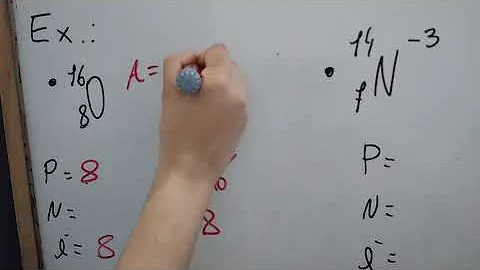 Ex.:
• ¹⁶₈O
A=
P= 8
N=
é= 8
8
• ¹⁴₇N⁻³
P=
N=
é=